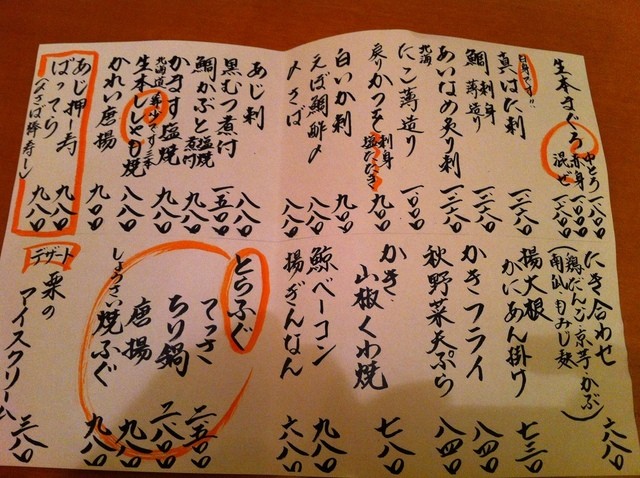 生本まぐろ
中とろ 一八〇〇
赤身 一〇〇〇
混ぜ 一〇〇〇
白身です!!
真はた刺 一二八〇
鯛 刺身 薄造り 一二八〇
あいなめ炙り刺 一二八〇
北海 たこ薄造り 一〇〇〇
炙りかつを 刺身 塩たたき 九〇〇
白いか刺 九〇〇
えぼ鯛酢〆 八八〇
〆さば 八八〇
あじ刺 八八〇
黒むつ煮付 一五〇〇
鯛かぶと 塩焼 煮付 九八〇
かます塩焼 八八〇
北海道
生本ししゃも焼 八八〇
かれい唐揚 九〇〇
あじ押し寿し 九八〇
ばってら 九八〇
(〆さば棒寿し)
にき合わせ 六八〇
(鶏だんご・京芋・かぶ
南瓜・もみじ麸)
揚大根
かにあん掛け 七三〇
かきフライ 八四〇
秋野菜天ぷら 八四〇
かき
山椒くわ焼 七八〇
鯨ベーコン 九八〇
揚ぎんなん 六八〇
とらふぐ
てっさ 二五〇〇
ちり鍋 二八〇〇
唐揚 九八〇
しょうゆ焼ふぐ 九八〇
デザート
栗の
アイスクリーム 三八〇